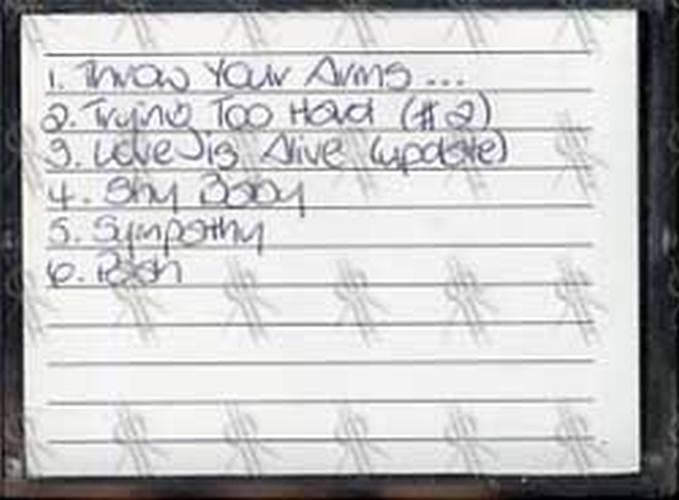 1. Throw Your Arms ...
2. Trying Too Hard (#2)
3. Love is Alive (update)
4. Shy Baby
5. Sympathy
6.